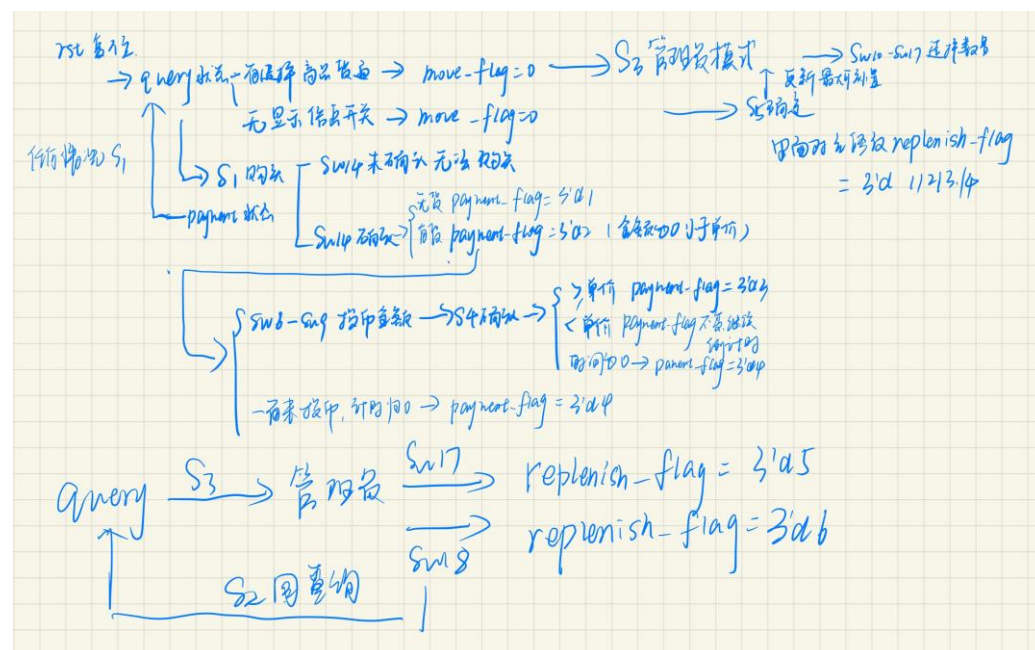 rst 复位.
→ query 状态 一直选择商品 → move-flag=0 → S3 管理员模式 → Sw10-Sw17 选择数量
↑ 更新最大剩余量
无显示信息开关 → move-flag=0 → S5确定
任何情况 S1
replenish-flag
= 3'd 1/2/3/4
→ S1 购买 Sw14 未确认 无法购买
payment 状态
无货 payment-flag = 3'd1
Sw14 确认 → 有货 payment-flag = 3'd2 (金额为0 小于单价)
Sw8-Sw9 投币金额 → S4确认 → ≥单价 payment-flag = 3'd3
<单价 payment-flag 不变 继续
倒计时
时间为0 → pament-flag = 3'd4
一直未投币, 计时为0 → payment-flag = 3'd4
query S3→ 管理员 Sw17→ replenish-flag = 3'd5
→ replenish-flag = 3'd6
Sw18
S2 回查询